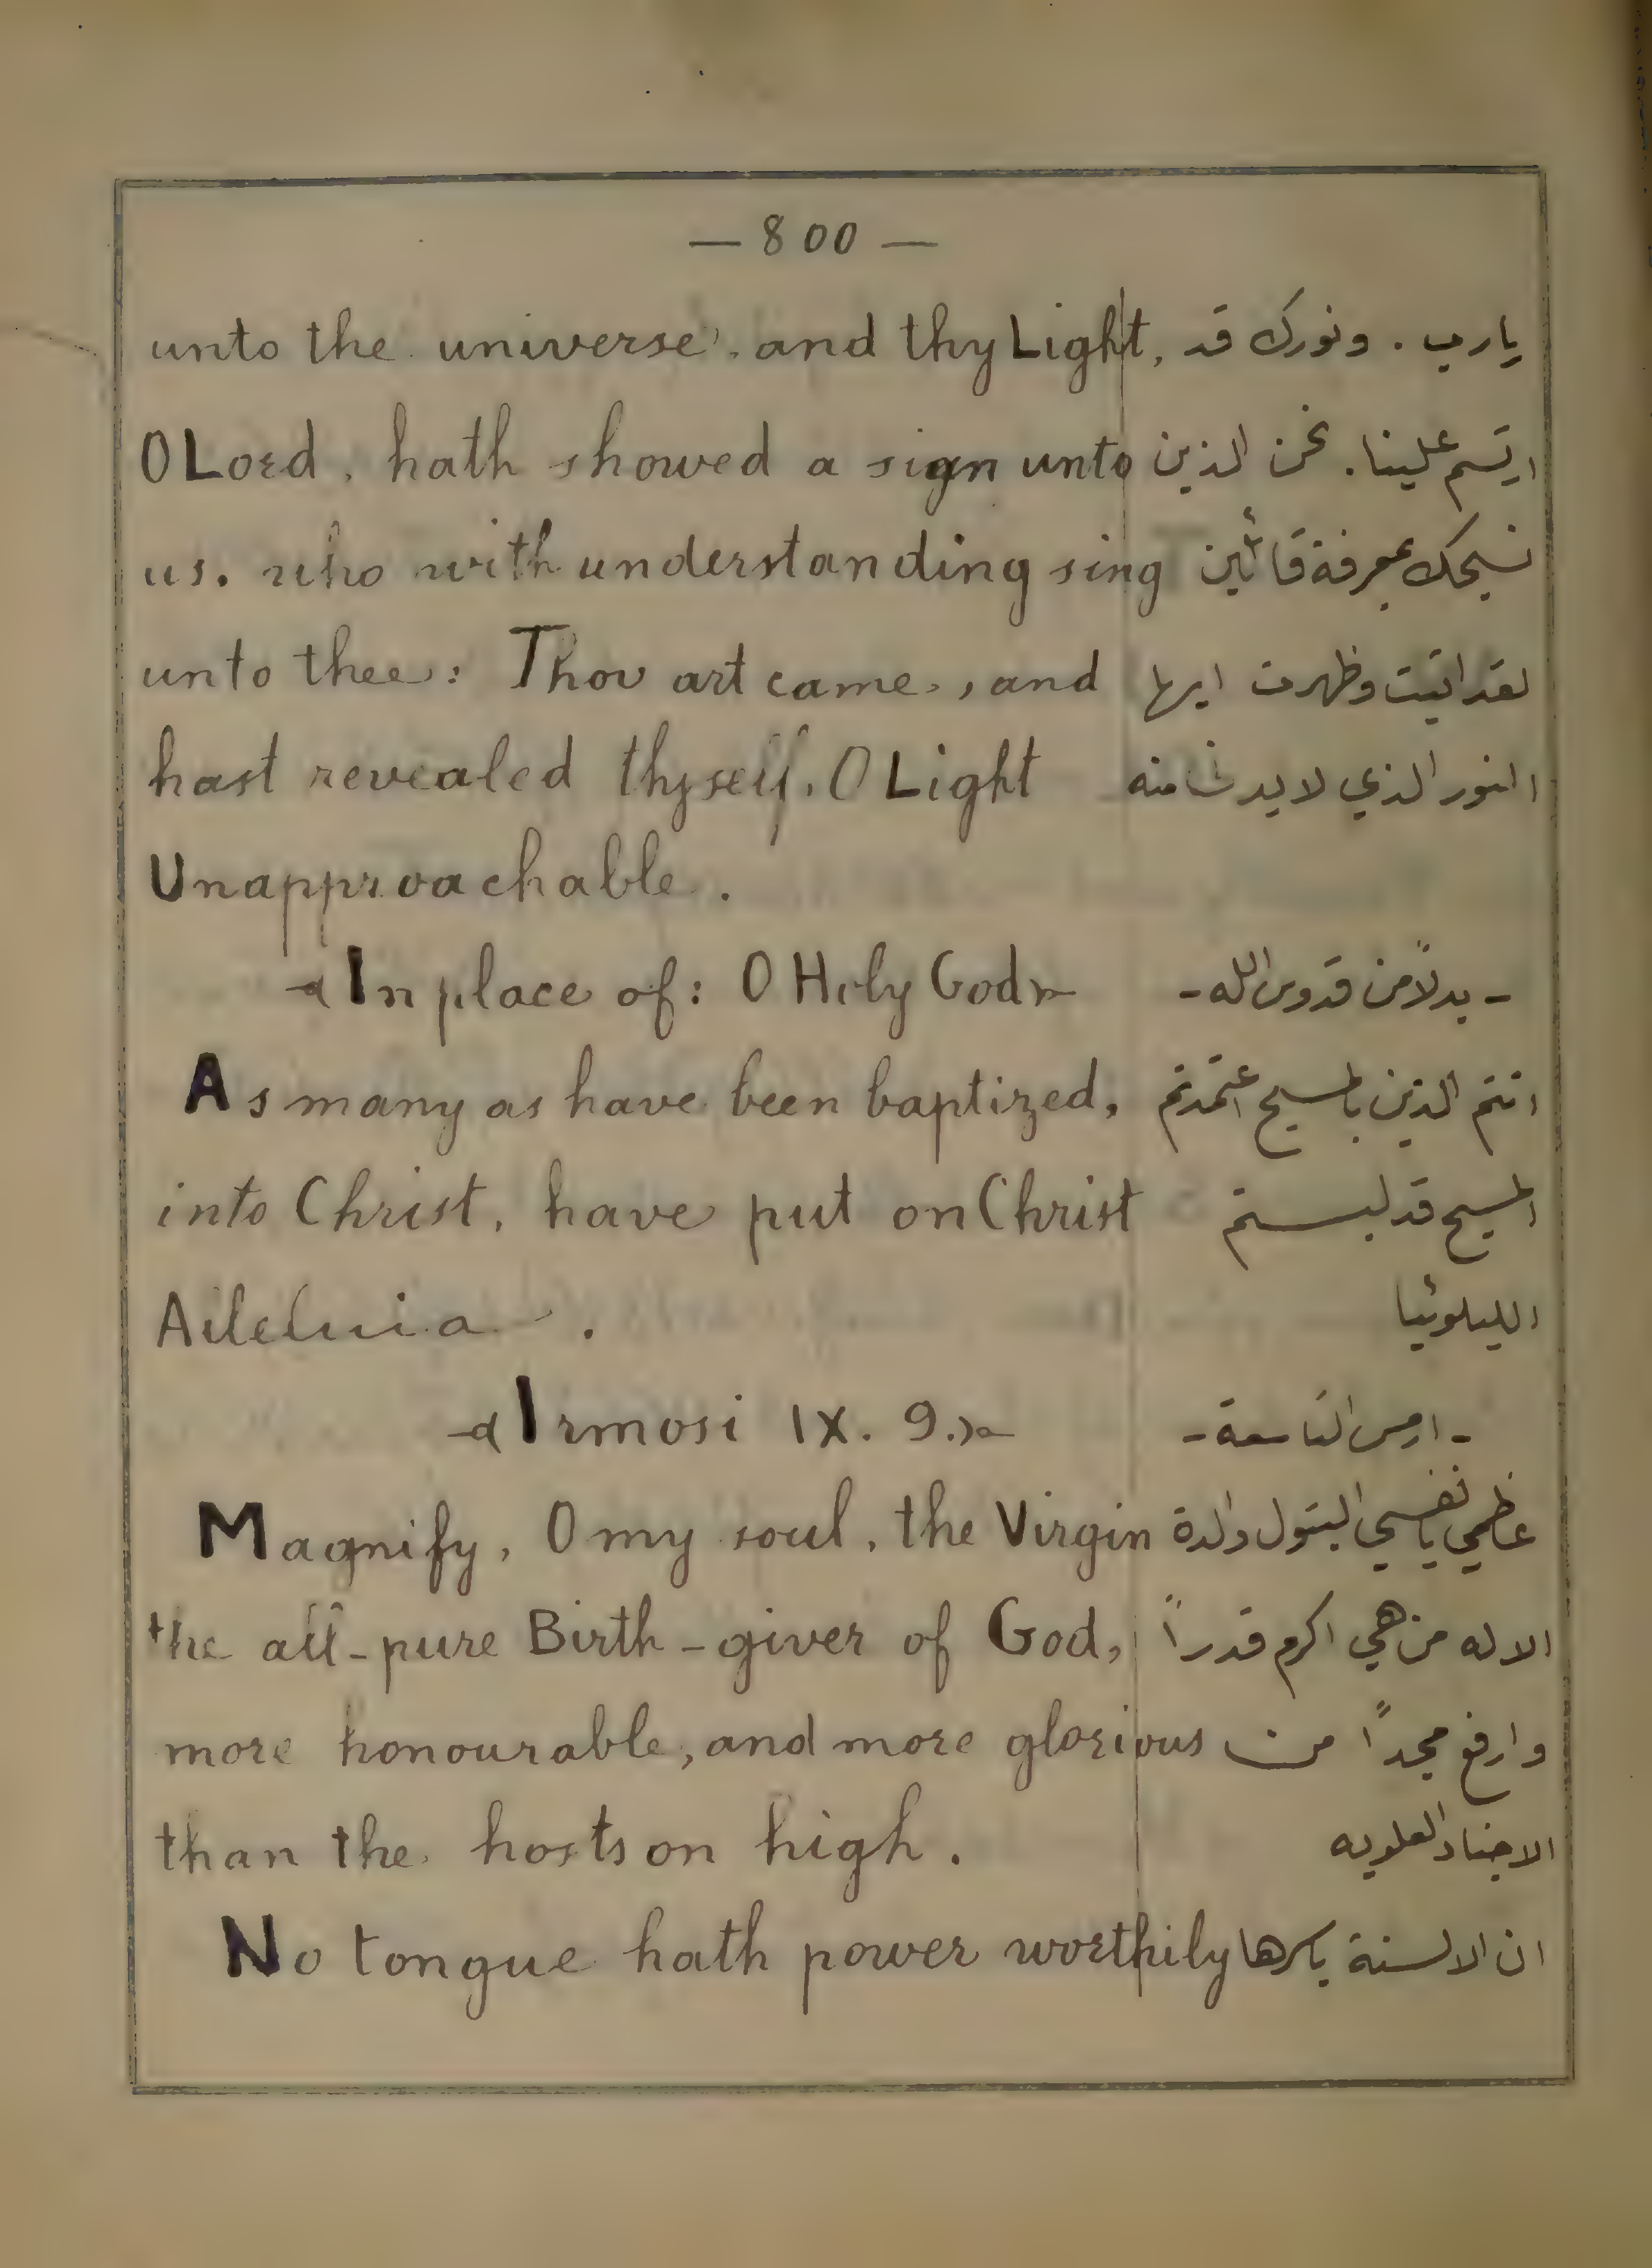 — 800 —
unto the universe, and thy Light, يارب . ونورك قد
O Lord, hath showed a sign unto ارتسم علينا. نحن الذين
us, who with understanding sing نسبحك بمعرفة قائلين
unto thee: Thou art came, and لقد اتيت وظهرت ايها
hast revealed thyself, O Light النور الذي لا يدنا منه
Unapproachable.
In place of: O Holy God - بدلاً من قدوس الله -
As many as have been baptized, انتم الذين بالمسيح اعتمدتم
into Christ, have put on Christ المسيح قد لبستم
Alleluia . الليلوئيا
Irmosi IX. 9. - ارمس التاسعة -
Magnify, O my soul, the Virgin عظمي يا نفسي البتول والدة
the all-pure Birth-giver of God, الاله من هي اكرم قدراً
more honourable, and more glorious وارفع مجداً من
than the hosts on high. الاجناد العلويه
No tongue hath power worthily ان الالسنة باسرها